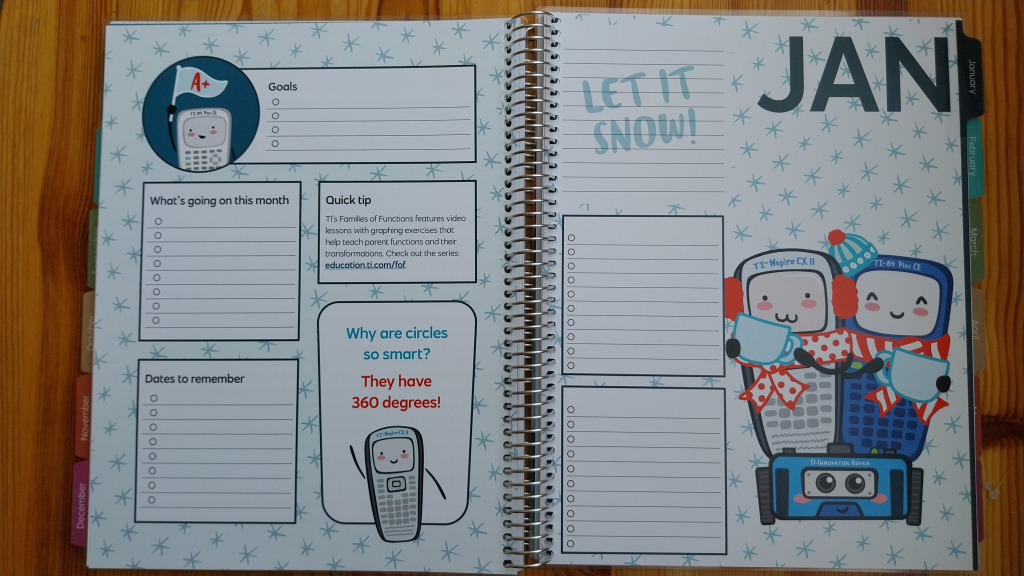 A+
TI-84 Plus CE
Goals
What's going on this month
Quick tip
TI's Families of Functions features video
lessons with graphing exercises that
help teach parent functions and their
transformations. Check out the series:
education.ti.com/fof.
Why are circles
so smart?
They have
360 degrees!
TI-Nspire CX II
Dates to remember
November
December
LET IT
SNOW!
JAN
TI-Nspire CX II
TI-84 Plus CE
TI-Innovator Rover
January
February
March
April